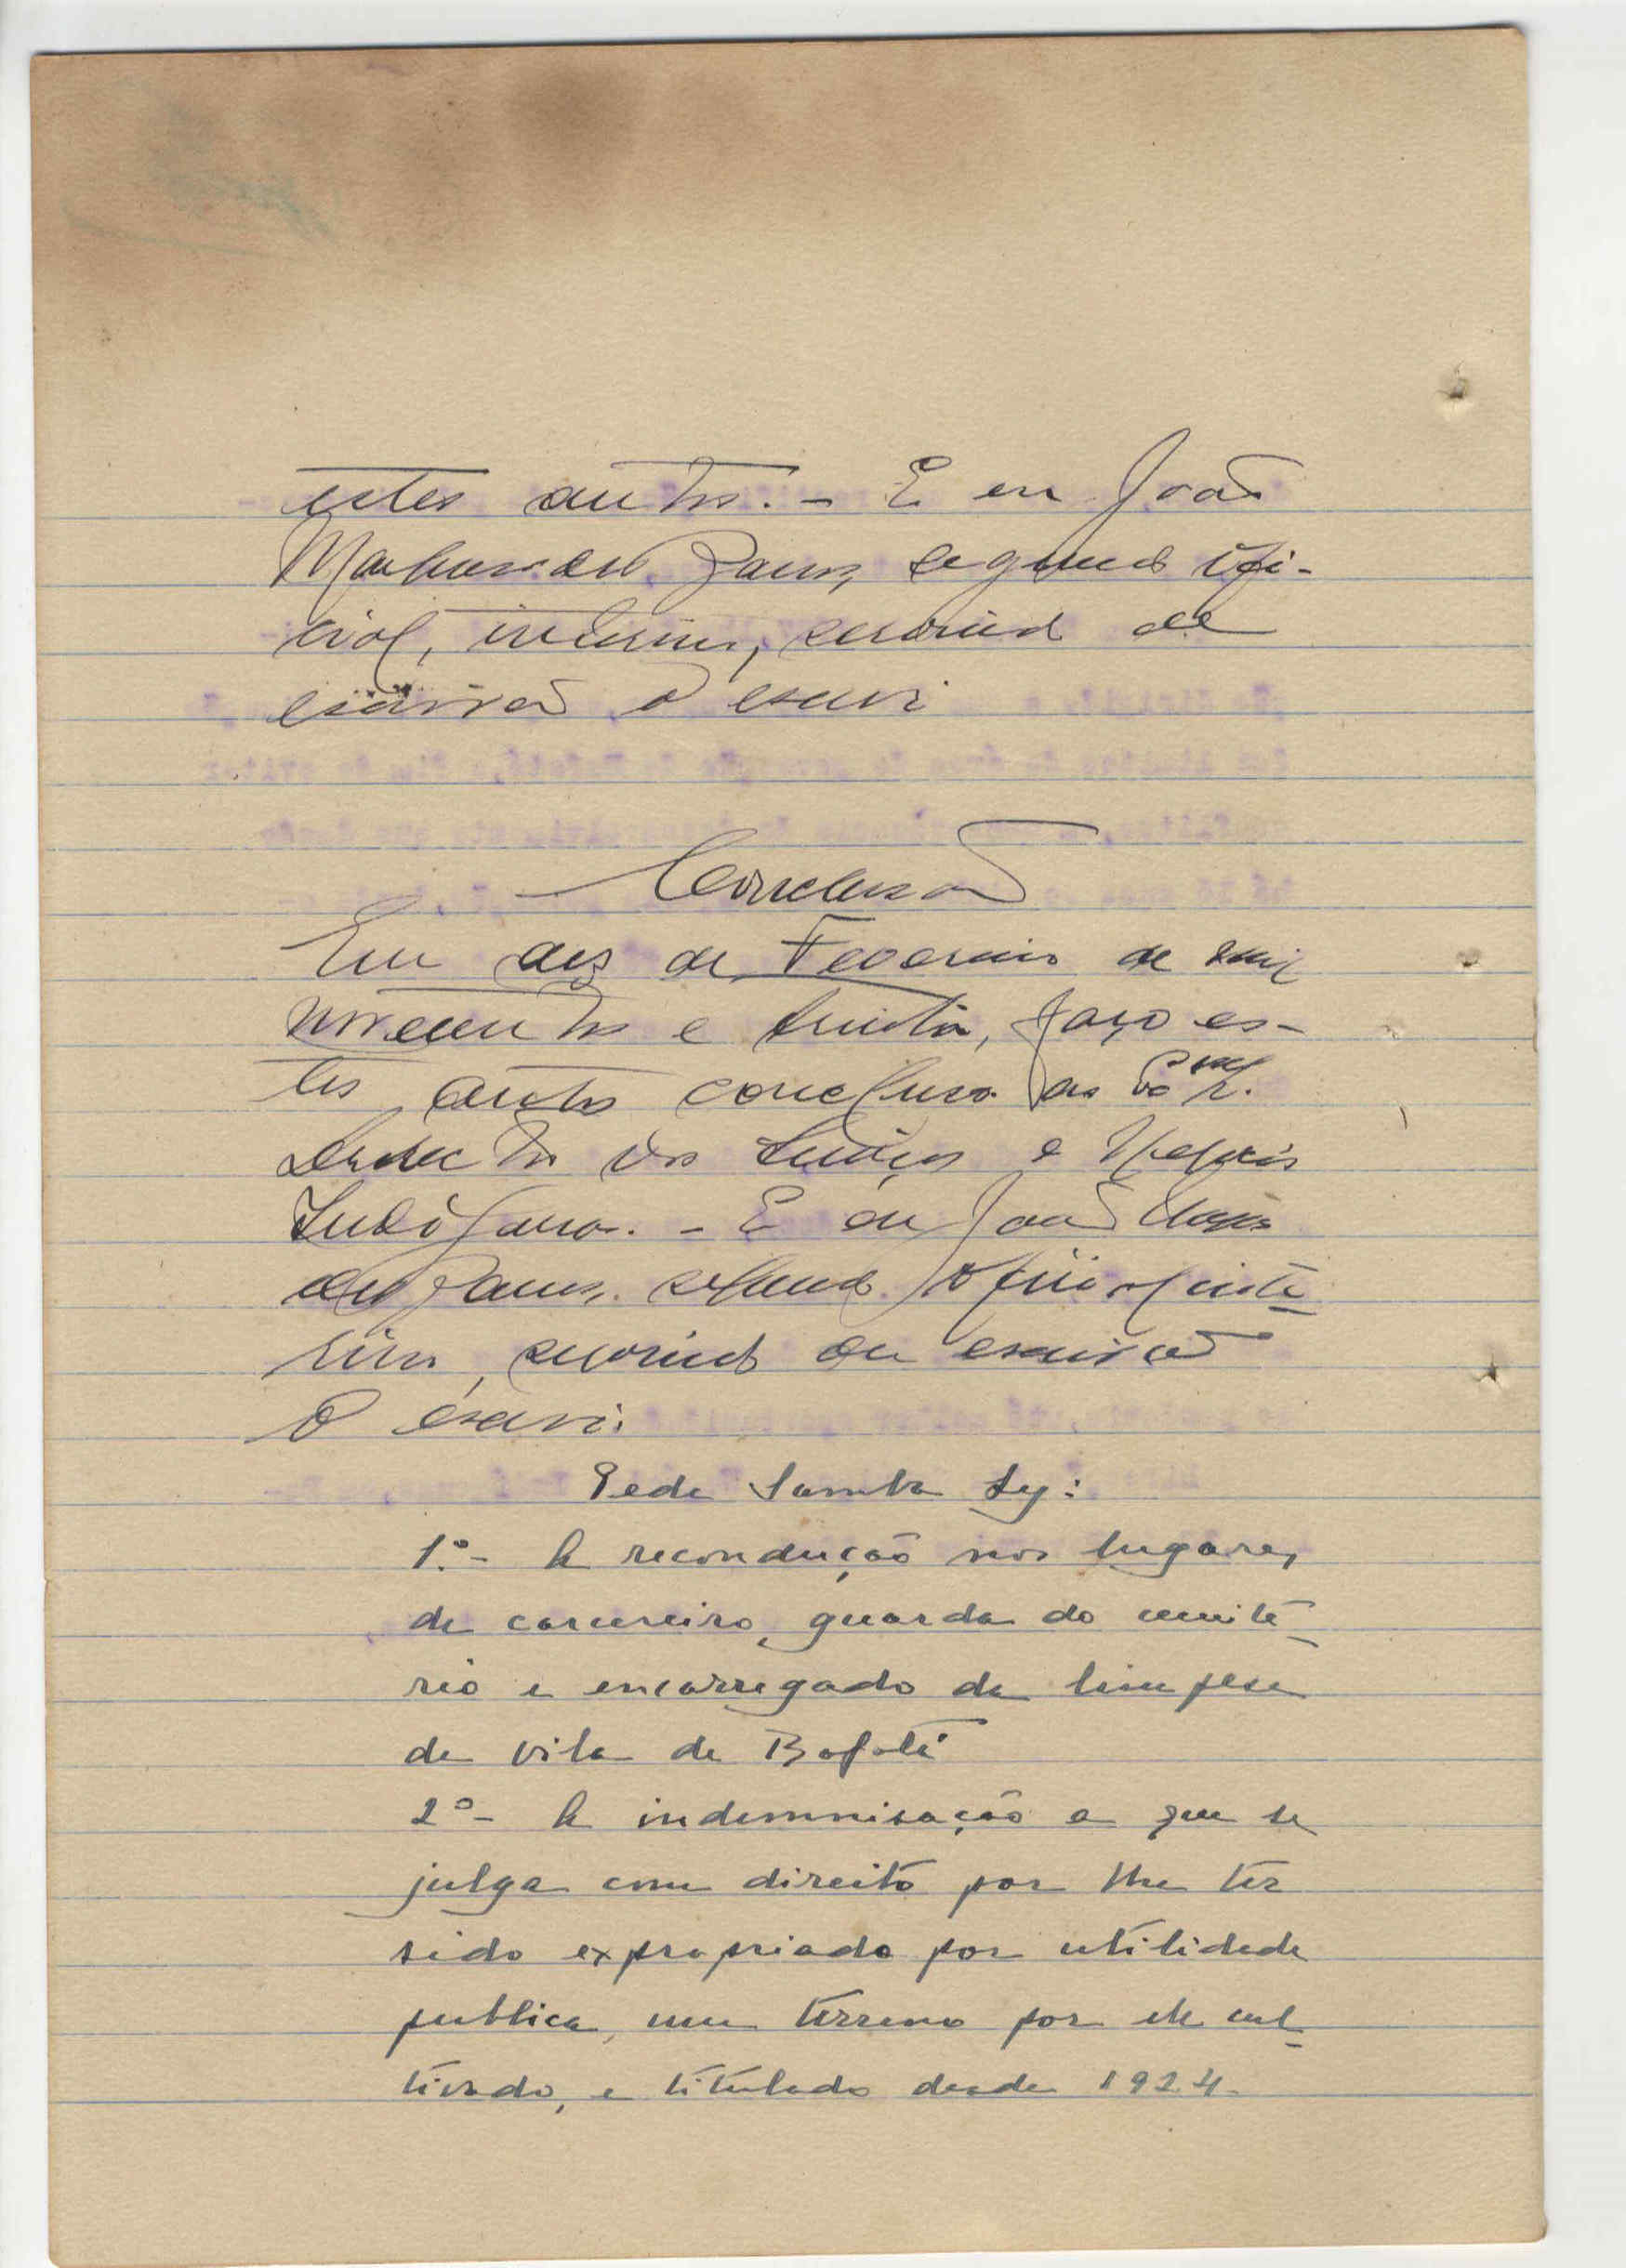 estes autos. - E eu João
segundo ofi-
cial, interino, servindo de
escrivão o escrevi
Conclusão
Em dez de Fevereiro de mil
novecentos e trinta, faço es-
tes autos conclusos ao Exmº Sr.
Director dos Serviços e Negocios
Indígenas. - E eu João
segundo oficial inte-
rino, servindo de escrivão
o escrevi.
Pede Samba Ly:
1.º - A recondução nos lugares
de carcereiro, guarda do cemité-
rio e encarregado da limpesa
da vila de Bafatá
2º - A indemnisação a que se
julga com direito por lhe ter
sido expropriado por utilidade
publica, um terreno por ele cul-
tivado, e titulado desde 1924.